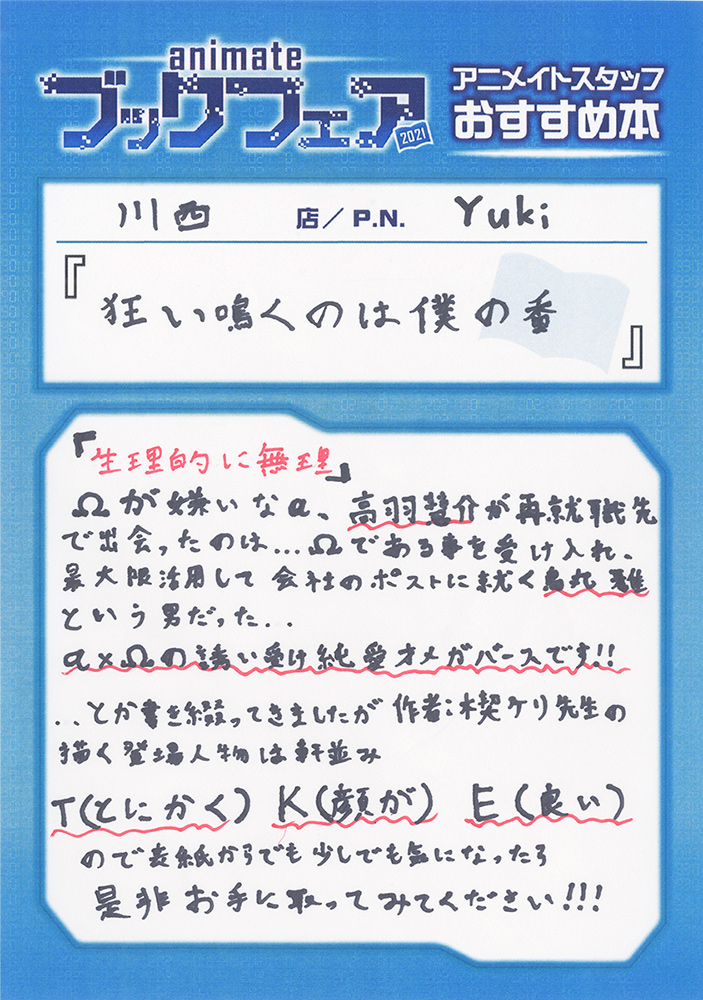 animate
ブックフェア
2021
アニメイトスタッフ
おすすめ本
川西 店／P.N. Yuki
『狂い鳴くのは僕の番』
「生理的に無理」
Ωが嫌いなα、高羽慧介が再就職先
で出会ったのは...Ωである事を受け入れ、
最大限活用して会社のポストに就く烏丸
という男だった..
α×Ωの誘い受け純愛オメガバースです!!
..とか書き綴ってきましたが作者:楔ケリ先生の
描く登場人物は軒並み
T(とにかく) K(顔が) E(良い)
ので表紙からでも少しでも気になったら
是非お手に取ってみてください!!!